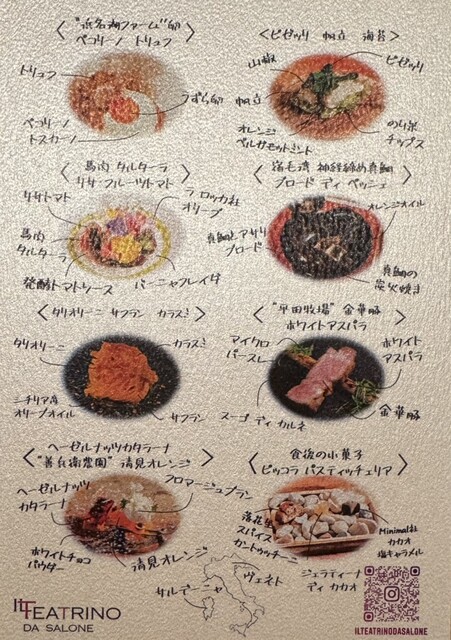 〈 "浜名湖ファーム" 卵
ペコリーノ トリュフ 〉
トリュフ
うずら卵
ペコリーノ
トスカーノ
〈 ピゼッリ 帆立 海苔 〉
山椒
ピゼッリ
帆立
オレンジ
ベルガモットミント
のり塩
チップス
〈 馬肉 タルターラ
リサ フルーツトマト 〉
リサトマト
ラ ロッカ社
オリーブ
馬肉
タルターラ
発酵トマトソース
バーニャフレイダ
〈 宿毛湾 神経締め真鯛
ブロード ディ ペッシェ 〉
オレンジオイル
真鯛とアサリ
ブロード
真鯛の
炭火焼き
〈 タリオリーニ サフラン カラスミ 〉
タリオリーニ
カラスミ
シチリア産
オリーブオイル
サフラン
〈 "平田牧場" 金華豚
ホワイトアスパラ 〉
マイクロ
パースレー
ホワイト
アスパラ
スーゴ ディ カルネ
金華豚
〈 ヘーゼルナッツカタラーナ
"善兵衛農園" 清見オレンジ 〉
ヘーゼルナッツ
カタラーナ
フロマージュブラン
ホワイトチョコ
パウダー
清見オレンジ
〈 食後の小菓子
ピッコラ パスティッチェリア 〉
落花生
スパイス
カントゥッチーニ
Minimal社
カカオ
塩キャラメル
ジェラティーナ
ディ カカオ
ヴェネト
サルデーニャ
IL TEATRINO
DA SALONE
ILTEATRINODASALONE